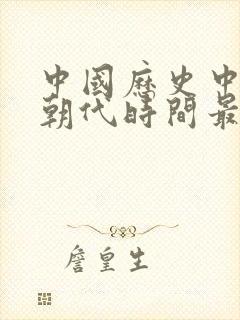 中國歷史中
朝代時間最
詹皇生